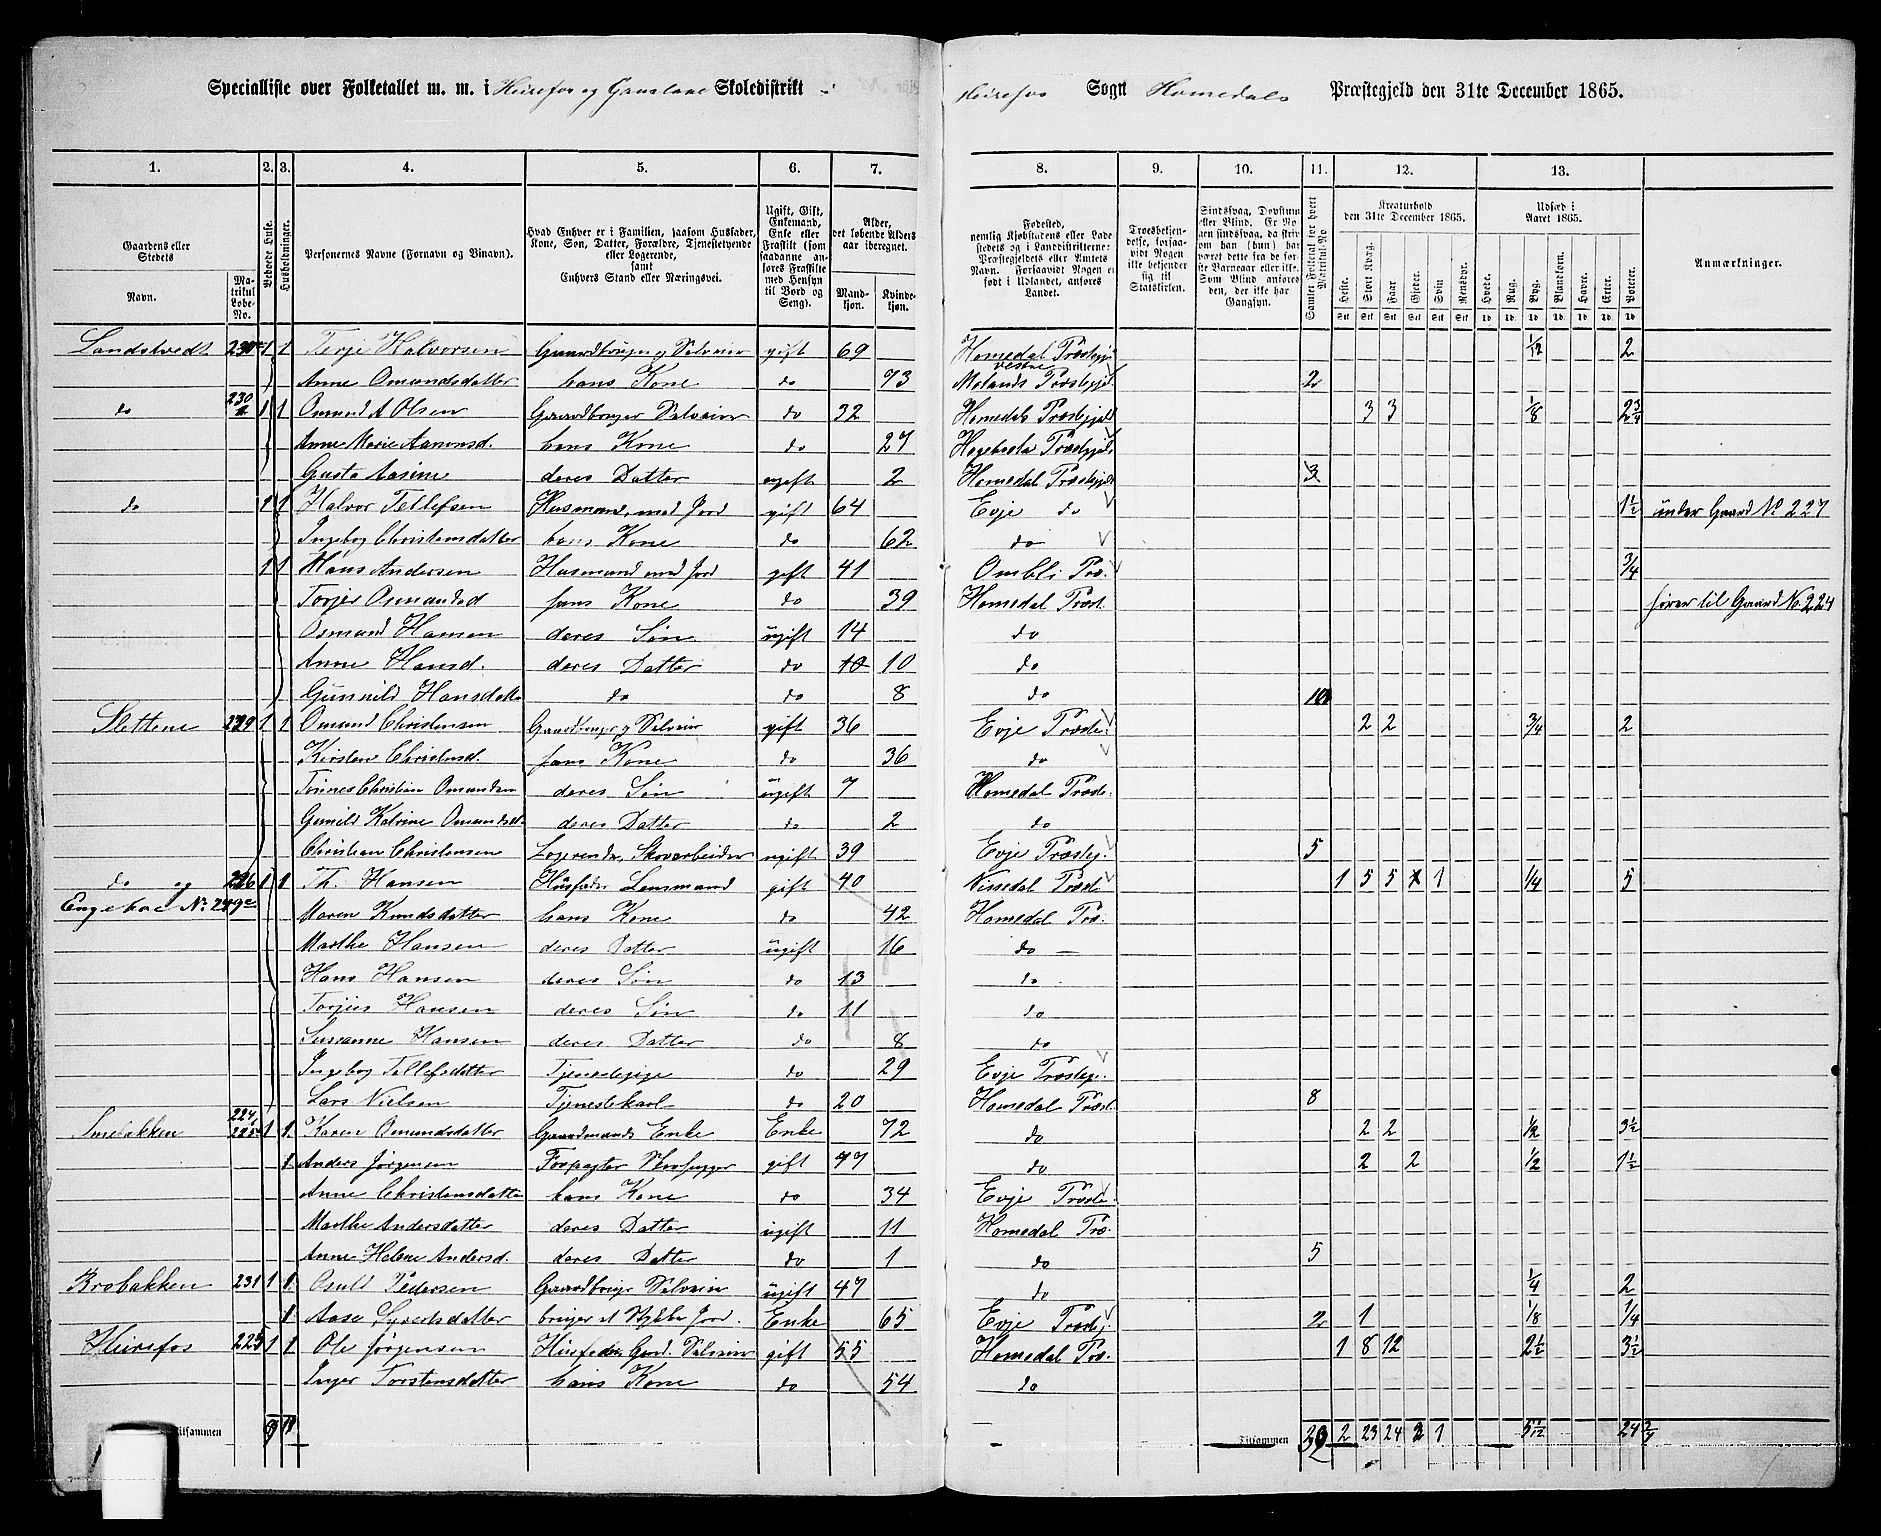 Specialliste over Folketallet m. m. i Heirefos og Skoledistrikt Heirefos Sogn Homedals Præstegjeld den 31te December 1865.
1. 2. 3. 4. 5. 6. 7. 8. 9. 10. 11. 12. 13.
Gaardens eller Stedets Navn. Matrikul Løbe-No. Bebøede Huse. Husholdninger. Personernes Navne (Fornavn og Binavn). Hvad Enhver er i Familien, saasom Husfader, Kone, Søn, Datter, Forældre, Tjenestetyende eller Logerende, samt Enhvers Stand eller Næringsvei. Ugift, Gift, Enkemand, Enke eller Fraskilt (som saadanne anføres Fraskilte med Hensyn til Bord og Seng). Alder, det løbende Alders- aar iberegnet. Mandkjøn. Kvindekjøn. Fødested, nemlig Kjøbstadens eller Ladestedets og i Landdistrikterne: Præstegjeldets eller Amtets Navn. Forsaavidt Nogen er født i Udlandet, anføres Landet. Troesbekjendelse, forsaavidt Nogen ikke bekjender sig til Statskirken. Sindssvag, Døvstum eller Blind. Er Nogen sindssvag, da skrives om han (hun) har været dette fra de første Barneaar eller ikke. Som Blind anføres den, der ikke har Gangsyn. Samlet Folketal for hvert Matrikul-No. Kreaturhold den 31te December 1865. Heste. Stort Kvæg. Faar. Gjeder. Svin. Rensdyr. Udsæd i Aaret 1865. Hvede. Rug. Byg. Blandkorn. Havre. Erter. Poteter. Anmærkninger.
Landstvedt 230 1 1 Terje Halvorsen Gaardbruger Selveier gift 69 Homedal Præstegj. 1/12 2
Anne Omundsdatter hans Kone do 73 vestre Molands Præstegjel. 2
do 230 1 1 Osmund A Olsen Gaardbruger Selveier do 32 Homedals Præstegjeld 3 3 1/8 2 3/4
Anne Marie Aanonsd. hans Kone do 27 Præstegjeld
Gusta Aasine deres Datter ugift 2 Homedal Præstegjeld 3
do 1 1 Halvor Tellefsen Husmand med Jord gift 64 Evje do 1 1/2 under Gaard No 227
Ingebog Christensdatter hans Kone do 62 do
1 1 Hans Andersen Husmand med Jord gift 41 Ombli Præ. 3/4
Torjer Osmundsd hans Kone do 39 Homedal Præst. hører til Gaard No. 224
Osmund Hansen deres Søn ugift 14 do
Anne Hansd. deres Datter do 10 10 do
Gunnild Hansdatte do do 8 do 10
Slettene 229 1 1 Omund Christensen Gaardbruger og Selveier gift 36 Evje Præste. 2 2 3/4 2
Kirsten Christensd. hans Kone do 36 do
Tønnes Christian Omundsen deres Søn ugift 7 Homedal Præste.
Gunild Katrine Omundsdt deres Datter do 2 do
Christian Christensen Logerende, Skovarbeider ugift 39 Evje Præsteg. 5
do og 226 1 1 Th. Hansen Husfader Lensmand gift 40 Nissedal Præst. 1 5 5 1 1/4 5
Engeboe No. 249 c Maren Knudsdatter hans Kone do 42 Homedal Præ.
Marthe Hansen deres Datter ugift 16 do
Hans Hansen deres Søn do 13 do
Torjus Hansen deres Søn do 11 do
Susanne Hansen deres Datter do 8 do
Ingebog Tellefsdatter Tjenestepige do 29 Evje Præstegj.
Lars Nielsen Tjenestekarl do 20 Homedal Præst. 8
Smebakken 224, 225 1 1 Karen Omundsdatter Gaardmands Enke Enke 72 do 2 2 1/2 3 1/2
1 Anders Jørgensen Forpagter gift 77 do 2 2 1/2 1 1/2
Anne Christensdatte hans Kone do 34 Evje Præste.
Marthe Andersdatter deres Datter ugift 11 Homedal Præ.
Anne Helene Andersd. deres Datter do 1 do 5
Brobakken 231 1 1 Osuld Pedersen Gaardbruger Selveier ugift 47 do 1/4 2
1 Aase Syvertsdatter bruger et Stykke Jord. Enke 65 Evje Præstg. 2 1 1/8 1/4
Heirefos 225 1 1 Ole Jørgensen Husfader Gaard. Selveier gift 55 Homedal Præ. 1 8 12 2 1/2 3 1/2
Inger Torstensdatter hans Kone do 54 do
Tilsammen 9 Tilsammen 2 23 24 2 1 5 1/12 24 3/4